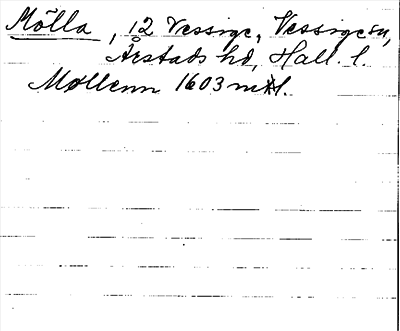 Mölla, 12 Vessige, Vessige sn,
Årstads hd, Hall. l.
Møllenn 1603 mtl.